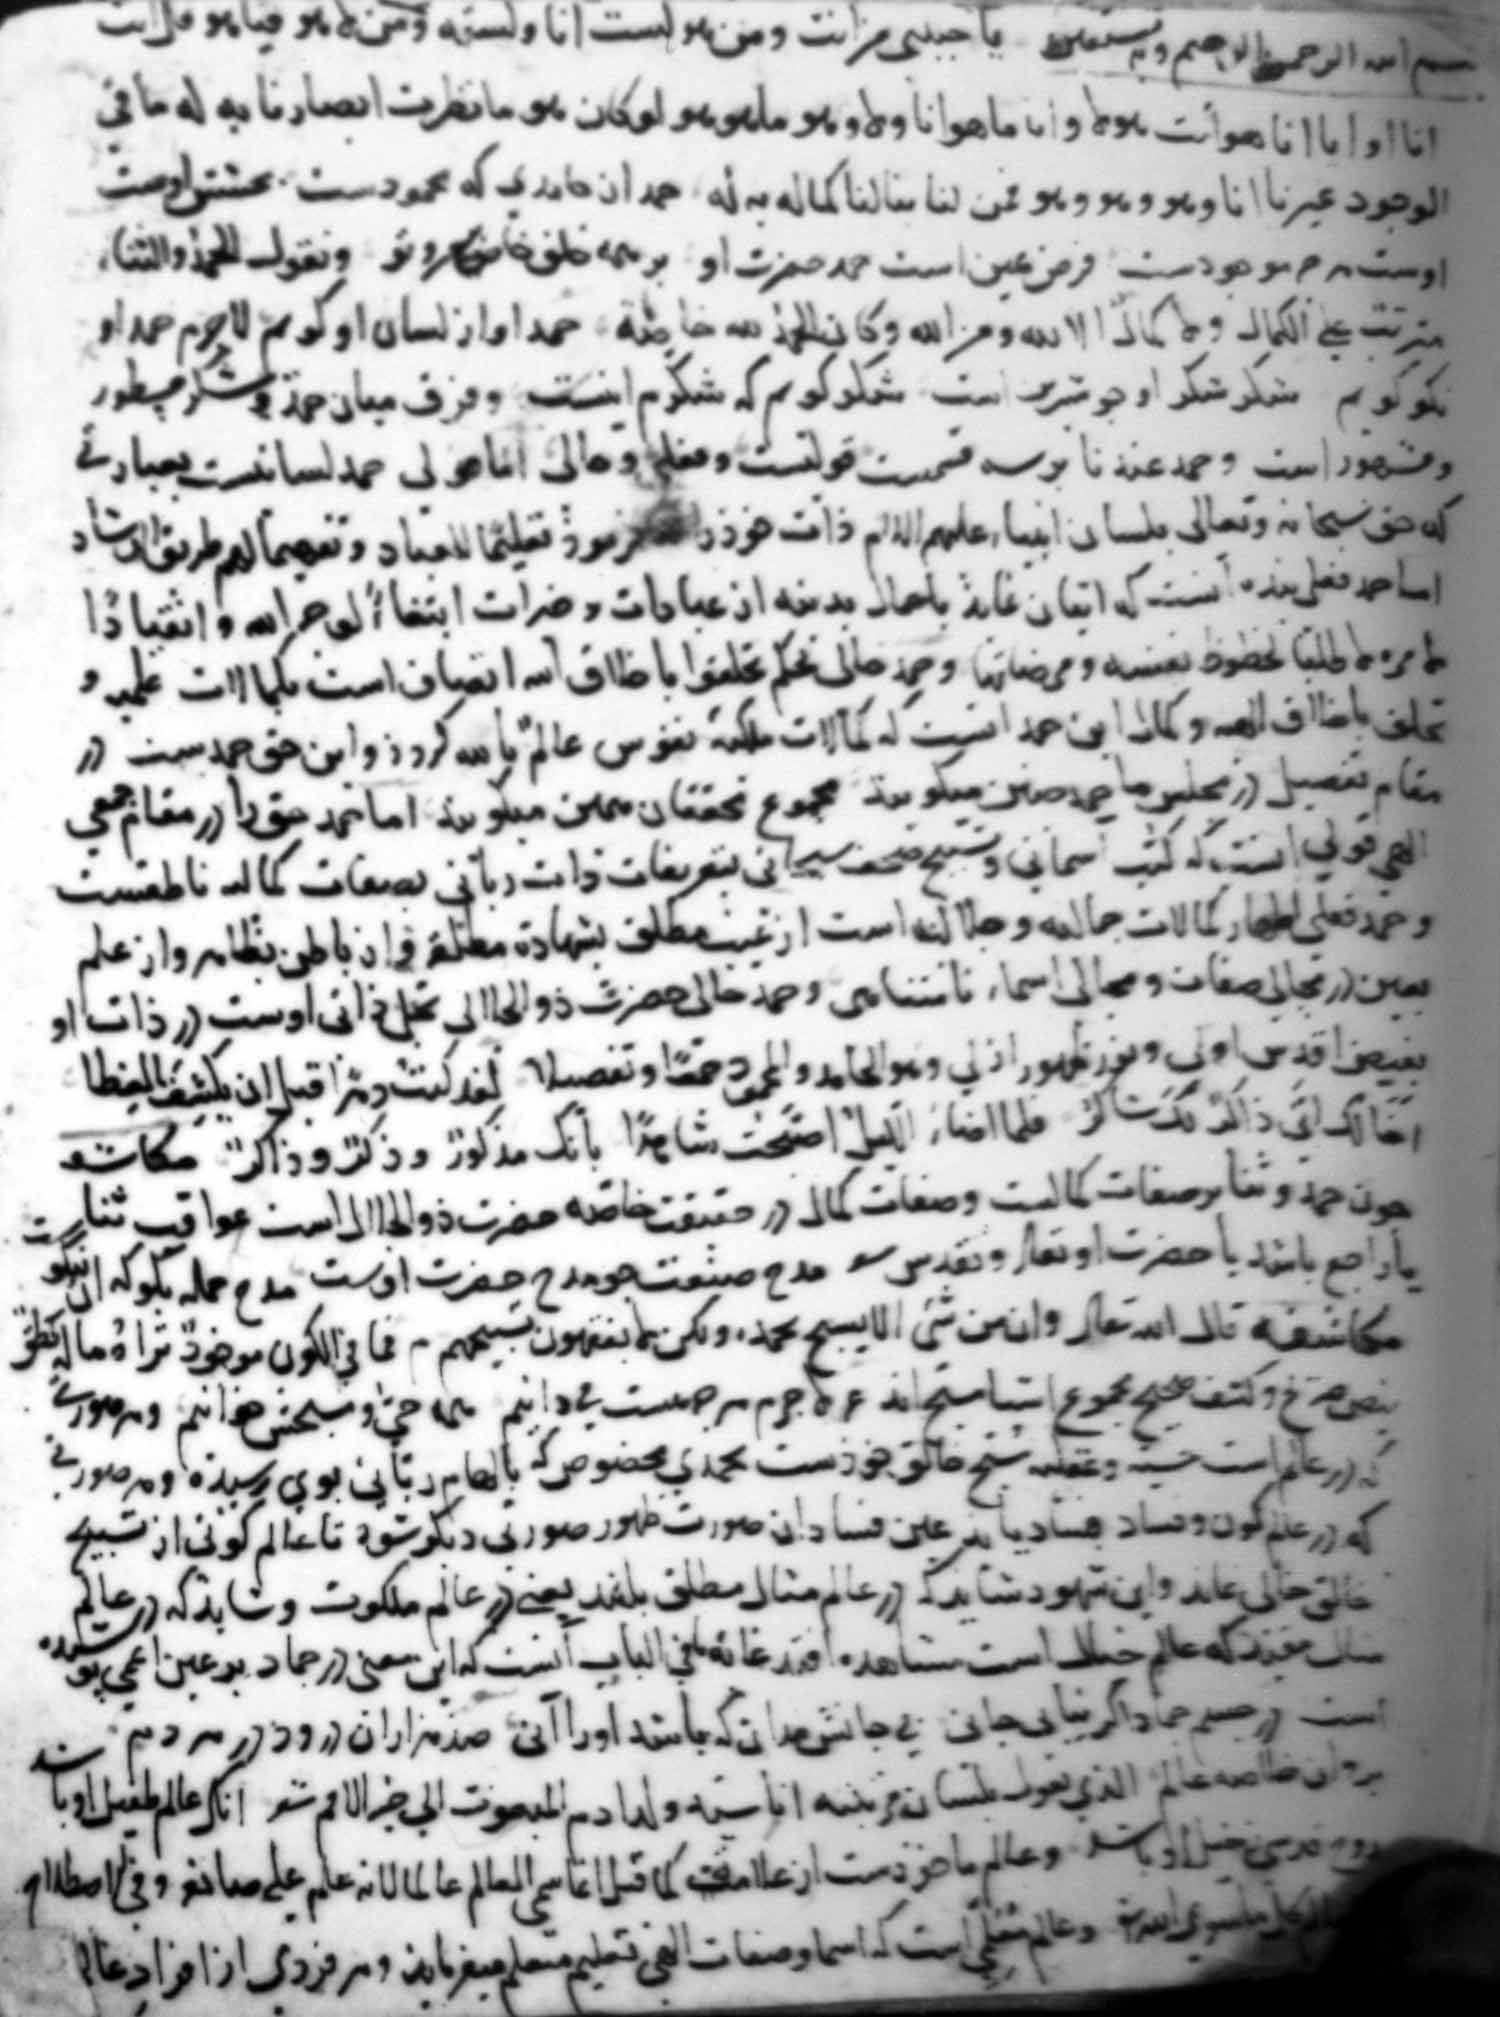 بسم الله الرحمن الرحیم وبه نستعین یا حبیبی من انت ومن هو لست انا ولسته ومن ما هو فینا هو قال انت
انا او انا انا هو انت هو ما وانا ما هو انا وما وهو ما هو هو لو کان هو ما نظرت ابصارنا به له ما فی
الوجود غیرنا انا وهو وهو وهو فمن لنا بنا لنا کما له به له حمد ان حامدی که محمودست بخشش اوست
اوست هر چه موجودست فرض عین است حمد حضرت او بر همه خلق خاصه بر من و تو ونقول الحمد والثناء
مترتب علی الکمال ولا کمال الا لله ومن الله وکان الحمد لله خاصة حمد او از لسان او گویم لاجرم حمد او
نکو گویم شکر شکر او چو شیرین است شکر گویم که شکرم اینست وفرق میان حمد وشکر مسطور
ومشهور است وحمد عند نا بر سه قسمست قولیست وفعلی وحالی اما قولی حمد لسانست بعبارتی
که حق سبحانه وتعالی بلسان انبیاء علیهم السلام ذات خود را فرمود تعلیما للعباد وتفهیما لهم طریق الرشاد
اما حمد فعلی بنده آنست که اتیان نماید باعمال بدنیه از عبادات وخیرات ابتغاءً لوجه الله وانقیادًا
لامره لا طلبا لحظوظ نفسه ومرضاتها وحمد حالی بحکم تخلقوا باخلاق الله اتصاف است بکمالات علمیه و
تخلق باخلاق الهیه وکمال این حمد آنست که کمالات ملکه نفوس عالم بالله گردد واین حق حمدیست در
مقام تفصیل در مجلس ما حمد چنین میگویند مجموع محققان همین میگویند اما حمد حق را در مقام جمعی
الهی قولی آنست که کتب آسمانی وتسبیح صحف سبحانی بتعریفات ذات ربانی بصفات کمالیه ناطقست
وحمد فعلی اظهار کمالات جمالیه وجلالیه است از غیب مطلق بشهادة مطلقه واز باطن بظاهر واز علم
بعین در مجالی صفات ومحالی اسماء نامتناهی وحمد حالی حضرت ذوالجلال تجلی ذاتی اوست در ذات او
بفیض اقدس اولی ونور ظهور ازلی وهو الحامد والمحمود جمعًا وتفصیلا لقد کنت دهرا قبل ان یکشف الغطا
اخالک انی ذاکر لک شاکر فلما اضاء اللیل اصبحت شاهدًا بانک مذکور وذکر وذاکر مکاشفه
چون حمد وثنا بر صفات کمالست وصفات کمال در حقیقت خاصه حضرت ذوالجلال است عواقب ثنا
یا راجع باشد با حضرت او تعالی وتقدس شعر مدح صنعت چو مدح حضرت اوست مدح جمله بگو که آن نیکوست
مکاشفه قال الله تعالی وان من شئ الا یسبح بحمده ولکن لا تفقهون تسبیحهم م فما فی الکون موجود تراه ما له نطق
بنص صریح وکشف صحیح مجموع اشیا مسبح اند ع لاجرم هر چه هست می دانیم همه حی ومسبحش خوانیم وهر صورتی
که در عالم است حسیه وعقلیه مسبح خالق خودست بحمدی مخصوص که بالهام ربانی بوی رسیده وهر صورتی
که در عالم کون وفساد فساد یابد عین فساد ان صورت ظهور صورتی دیگر شود تا عالم کونی از تسبیح
خالق خالی نماند واین شهود شاید که در عالم مثال مطلق باشد یعنی در عالم ملکوت وشاید که در عالم
مثال مقید که عالم خیال است مشاهده افتد غایة ما فی الباب آنست که این معنی در جماد بر عین اعمی پوشیده
است در جسم جماد اگر نیابی جانی بی جانش مدان که باشد او را آنی صد هزاران درود در هر دم
بر روان خلاصه عالم الذی یقول بلسان مرتبته انا سید ولد ادم المبعوث الی خیر الامم شعر آنکه عالم طفیل او باشد
روح قدسی خیل او باشد وعالم ماخوذست از علامت کما قیل انما سمی العالم عالما لانه علم علی صانعه وفی اصطلاح
کل ما سوی الله وعالم مثقلی است که اسما وصفات الهی تعلیم متعلم میفرماید وهر فردی از افراد عالم